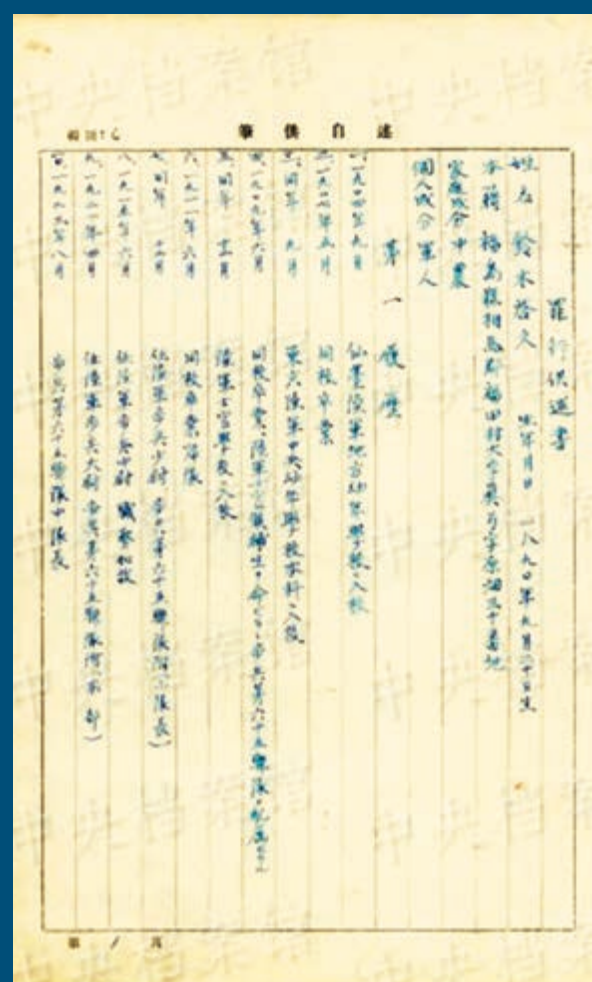 述自供筆
罪行供述書
姓名 鈴木啓久 生年月日 一八九〇年九月二十日生
本籍 福島縣相馬郡福田村大字真弓字原畑三十番地
家庭成分 中農
個人成分 軍人
第一 履歴
一、一九〇四年九月 仙臺陸軍地方幼年學校ニ入校
同校卒業
三、同年 九月 東京陸軍中央幼年學校本科ニ入校
四、一九〇九年六月 同校卒業、陸軍士官候補生ヲ命ゼラレ歩兵第六十五聯隊ニ配属
五、同年 十二月 陸軍士官學校ニ入校
六、一九一一年 六月 同校卒業、歸隊
七、同年 十二月 任陸軍歩兵少尉 歩兵第六十五聯隊附(小隊長)
八、一九一五年 六月 任陸軍歩兵中尉
九、一九二一年 四月 任陸軍歩兵大尉 歩兵第六十五聯隊附
八月 歩兵第六十五聯隊中隊長
第 1 頁
中央档案馆